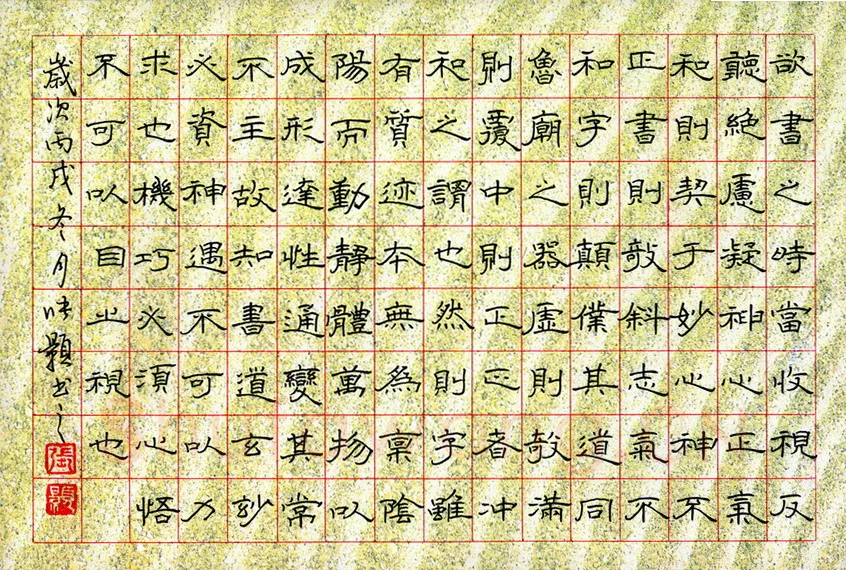 欲書之時當收視反
聽絕慮凝神心正氣
和則契于妙心神不
正書則攲斜志氣不
和字則顛僕其道同
魯廟之器虛則攲滿
則覆中則正正者冲
和之謂也然則字雖
有質迹本無為稟陰
陽而動靜體萬物以
成形達性通變其常
不主故知書道玄妙
必資神遇不可以力
求也機巧必須心悟
不可以目之視也
歲次丙戌冬月張書之
張